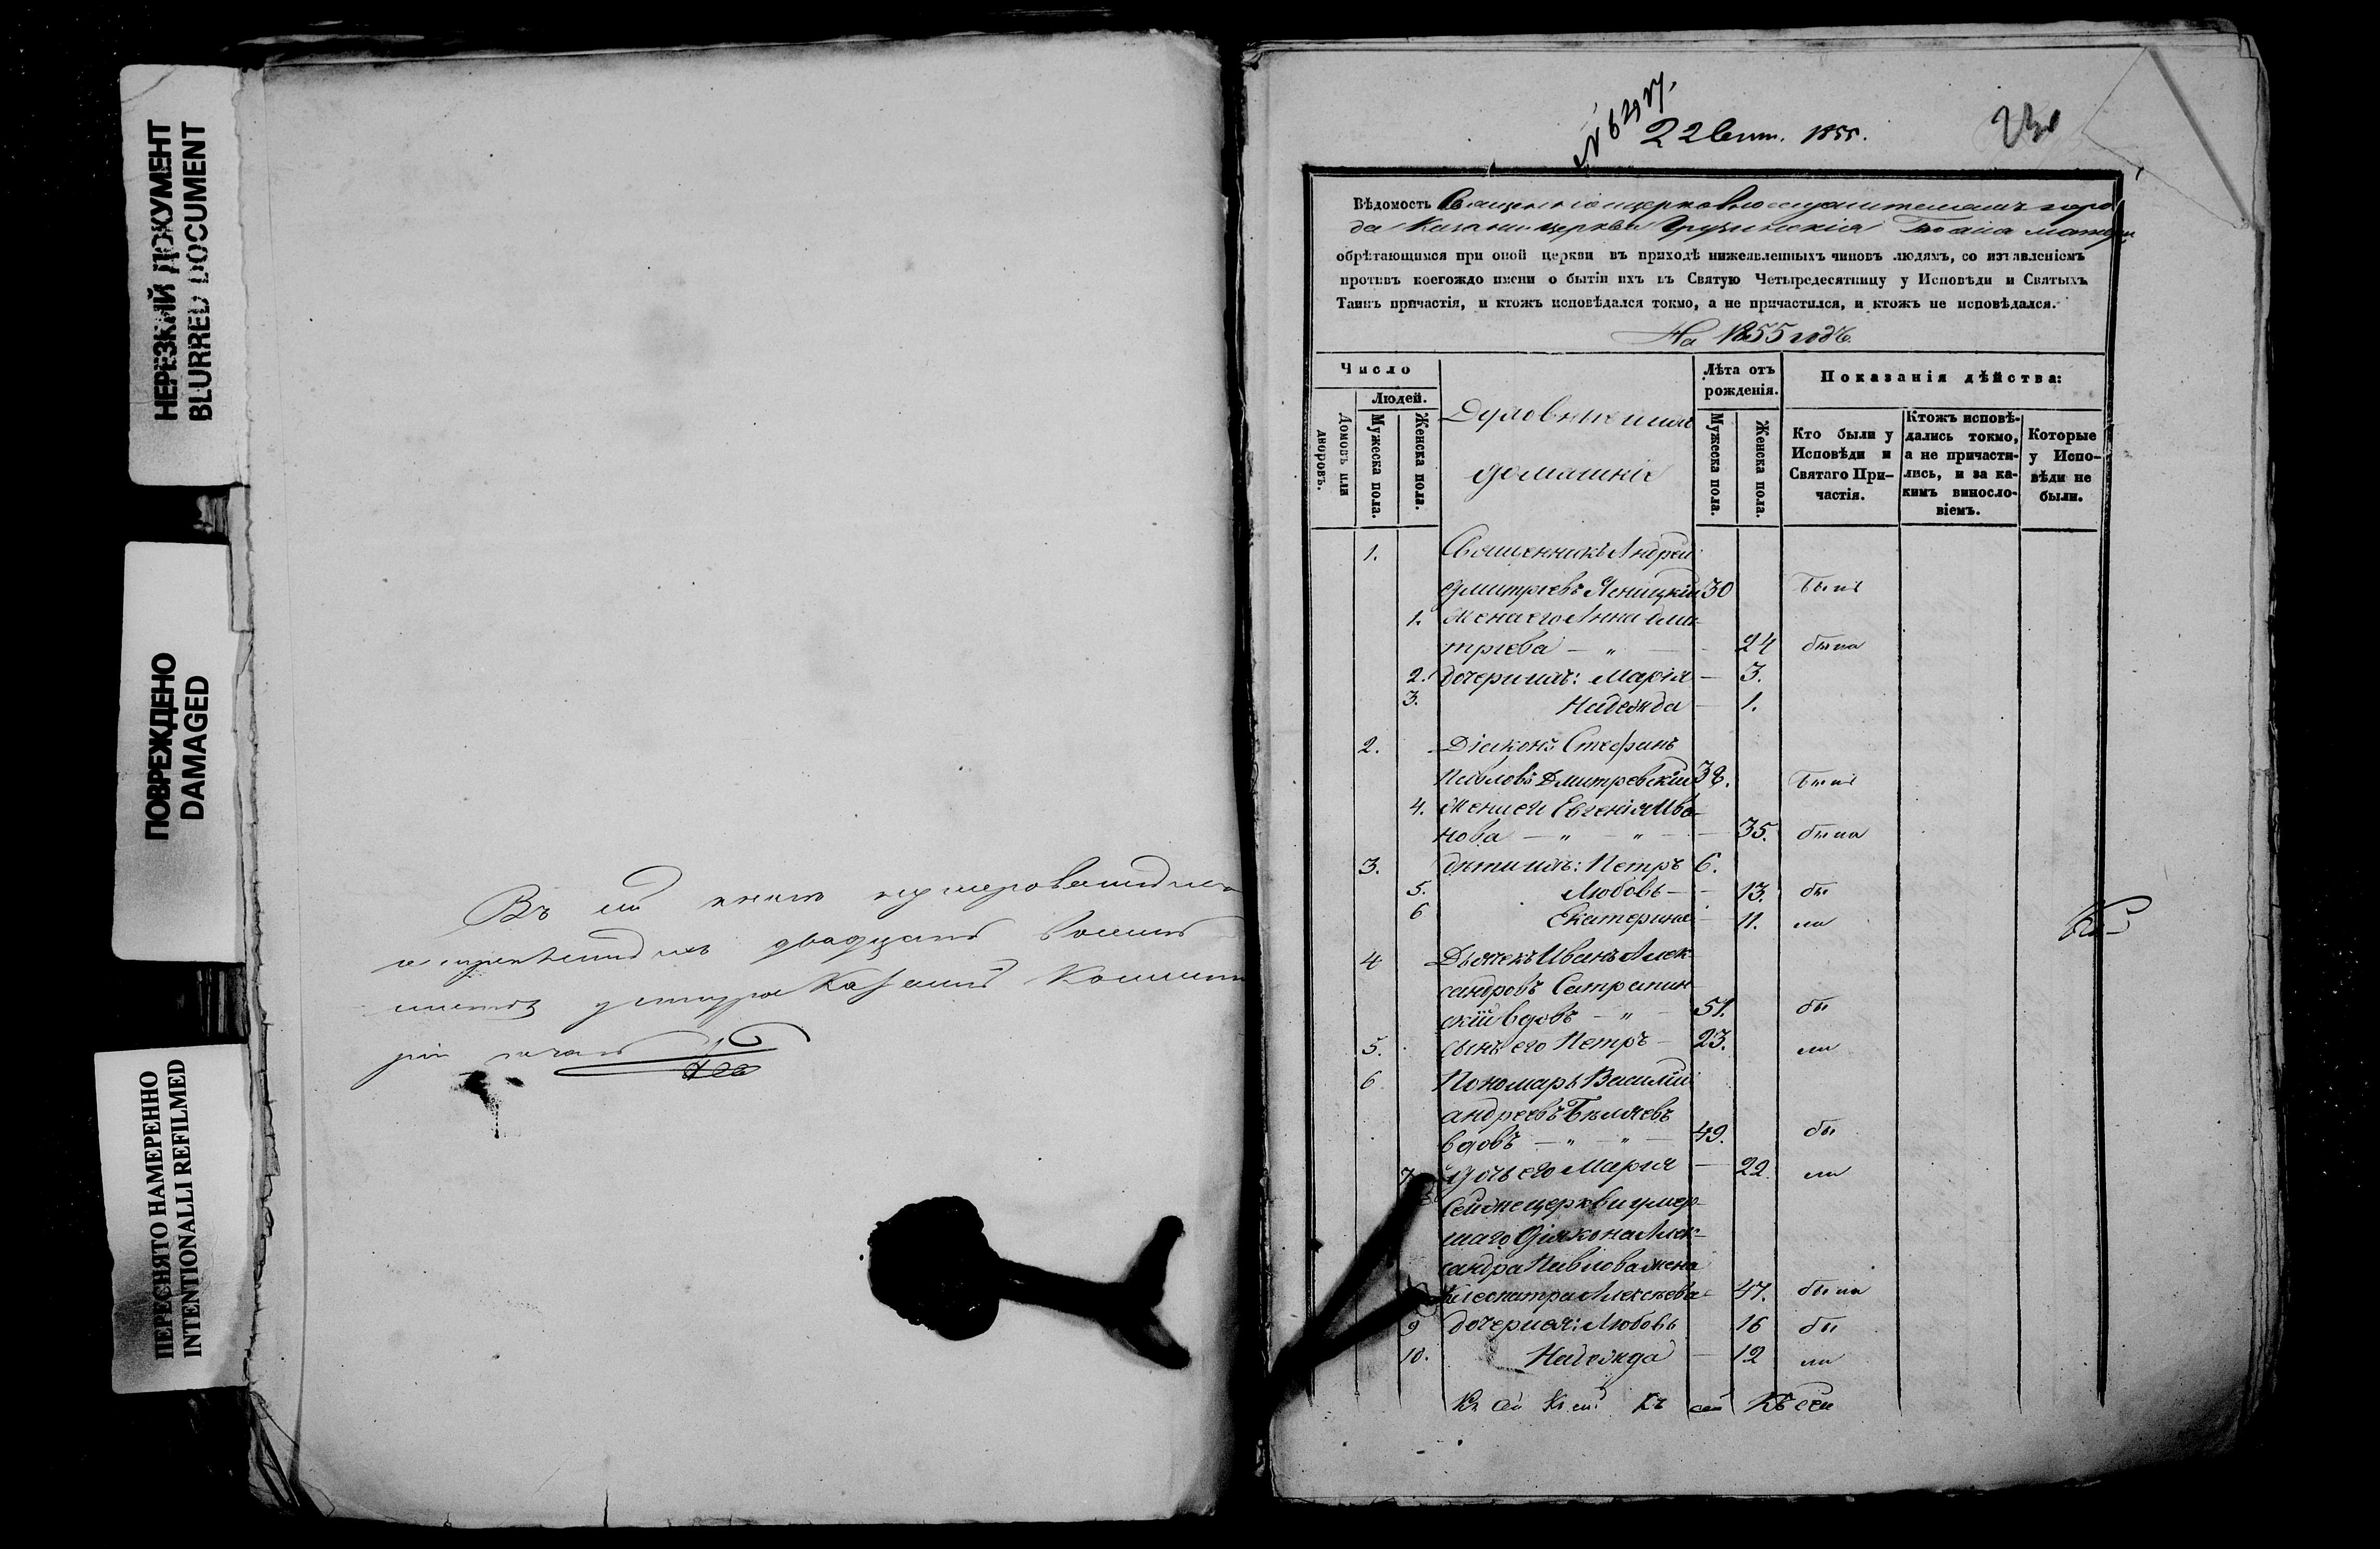 НЕРЕЗКИЙ ДОКУМЕНТ
BLURRED DOCUMENT
ПОВРЕЖДЕНО
DAMAGED
ПЕРЕСНЯТО НАМЕРЕННО
INTENTIONALLI REFILMED
Въ сей книге
двадцать восемь
листовъ
22 Сент. 1855.
Вѣдомость горо
да Казани церкви Грузинскія
обрѣтающимся при оной церкви въ приходѣ нижеявленныхъ чиновъ людямъ, со изъявленіемъ
противъ коегождо имени о бытіи ихъ въ Святую Четыредесятницу у Исповѣди и Святыхъ
Таинъ причастія, и ктожъ исповѣдался токмо, а не причастился, и ктожъ не исповѣдался.
На 1855 годъ.
Число
Людей.
Домовъ или дворовъ.
Мужеска пола.
Женска пола.
Духовные и ихъ
домашніе
Лѣта отъ рожденія.
Мужеска пола.
Женска пола.
Показанія дѣйства:
Кто были у Исповѣди и Святаго Причастія.
Ктожъ исповѣдались токмо, а не причастились, и за какимъ винословіемъ.
Которые у Исповѣди не были.
1. Священникъ Андрей
Димитріевъ Яницкій 30 былъ
1. Жена его Анна Дми
тріева — „ — 24 была
2. Дочери ихъ: Марія — 3.
3. Надежда — 1.
2. Діаконъ Стефанъ
Павловъ Дмитревскій 38. былъ
4. Жена его Евгенія Ива
нова — „ — „ — 35. была
3. Дѣти ихъ: Петръ 6.
5. Любовь — 13. бы
6 Екатерина — 11. ли
4 Дьячекъ Иванъ Алек
сандровъ Сатрапин
скій вдовъ — „ — 51. бы
5. Сынъ его Петръ — 23. ли
6 Пономарь Василій
Андреевъ Бѣляевъ
вдовъ — „ — „ — 49. бы
7 Дочь его Марія — 22. ли
Сей же церкви умер
шаго Діакона Алек
сандра Павлова жена
Клеопатра Алексѣева 47. была
9 Дочери ея: Любовь 16 бы
10. Надежда — 12 ли